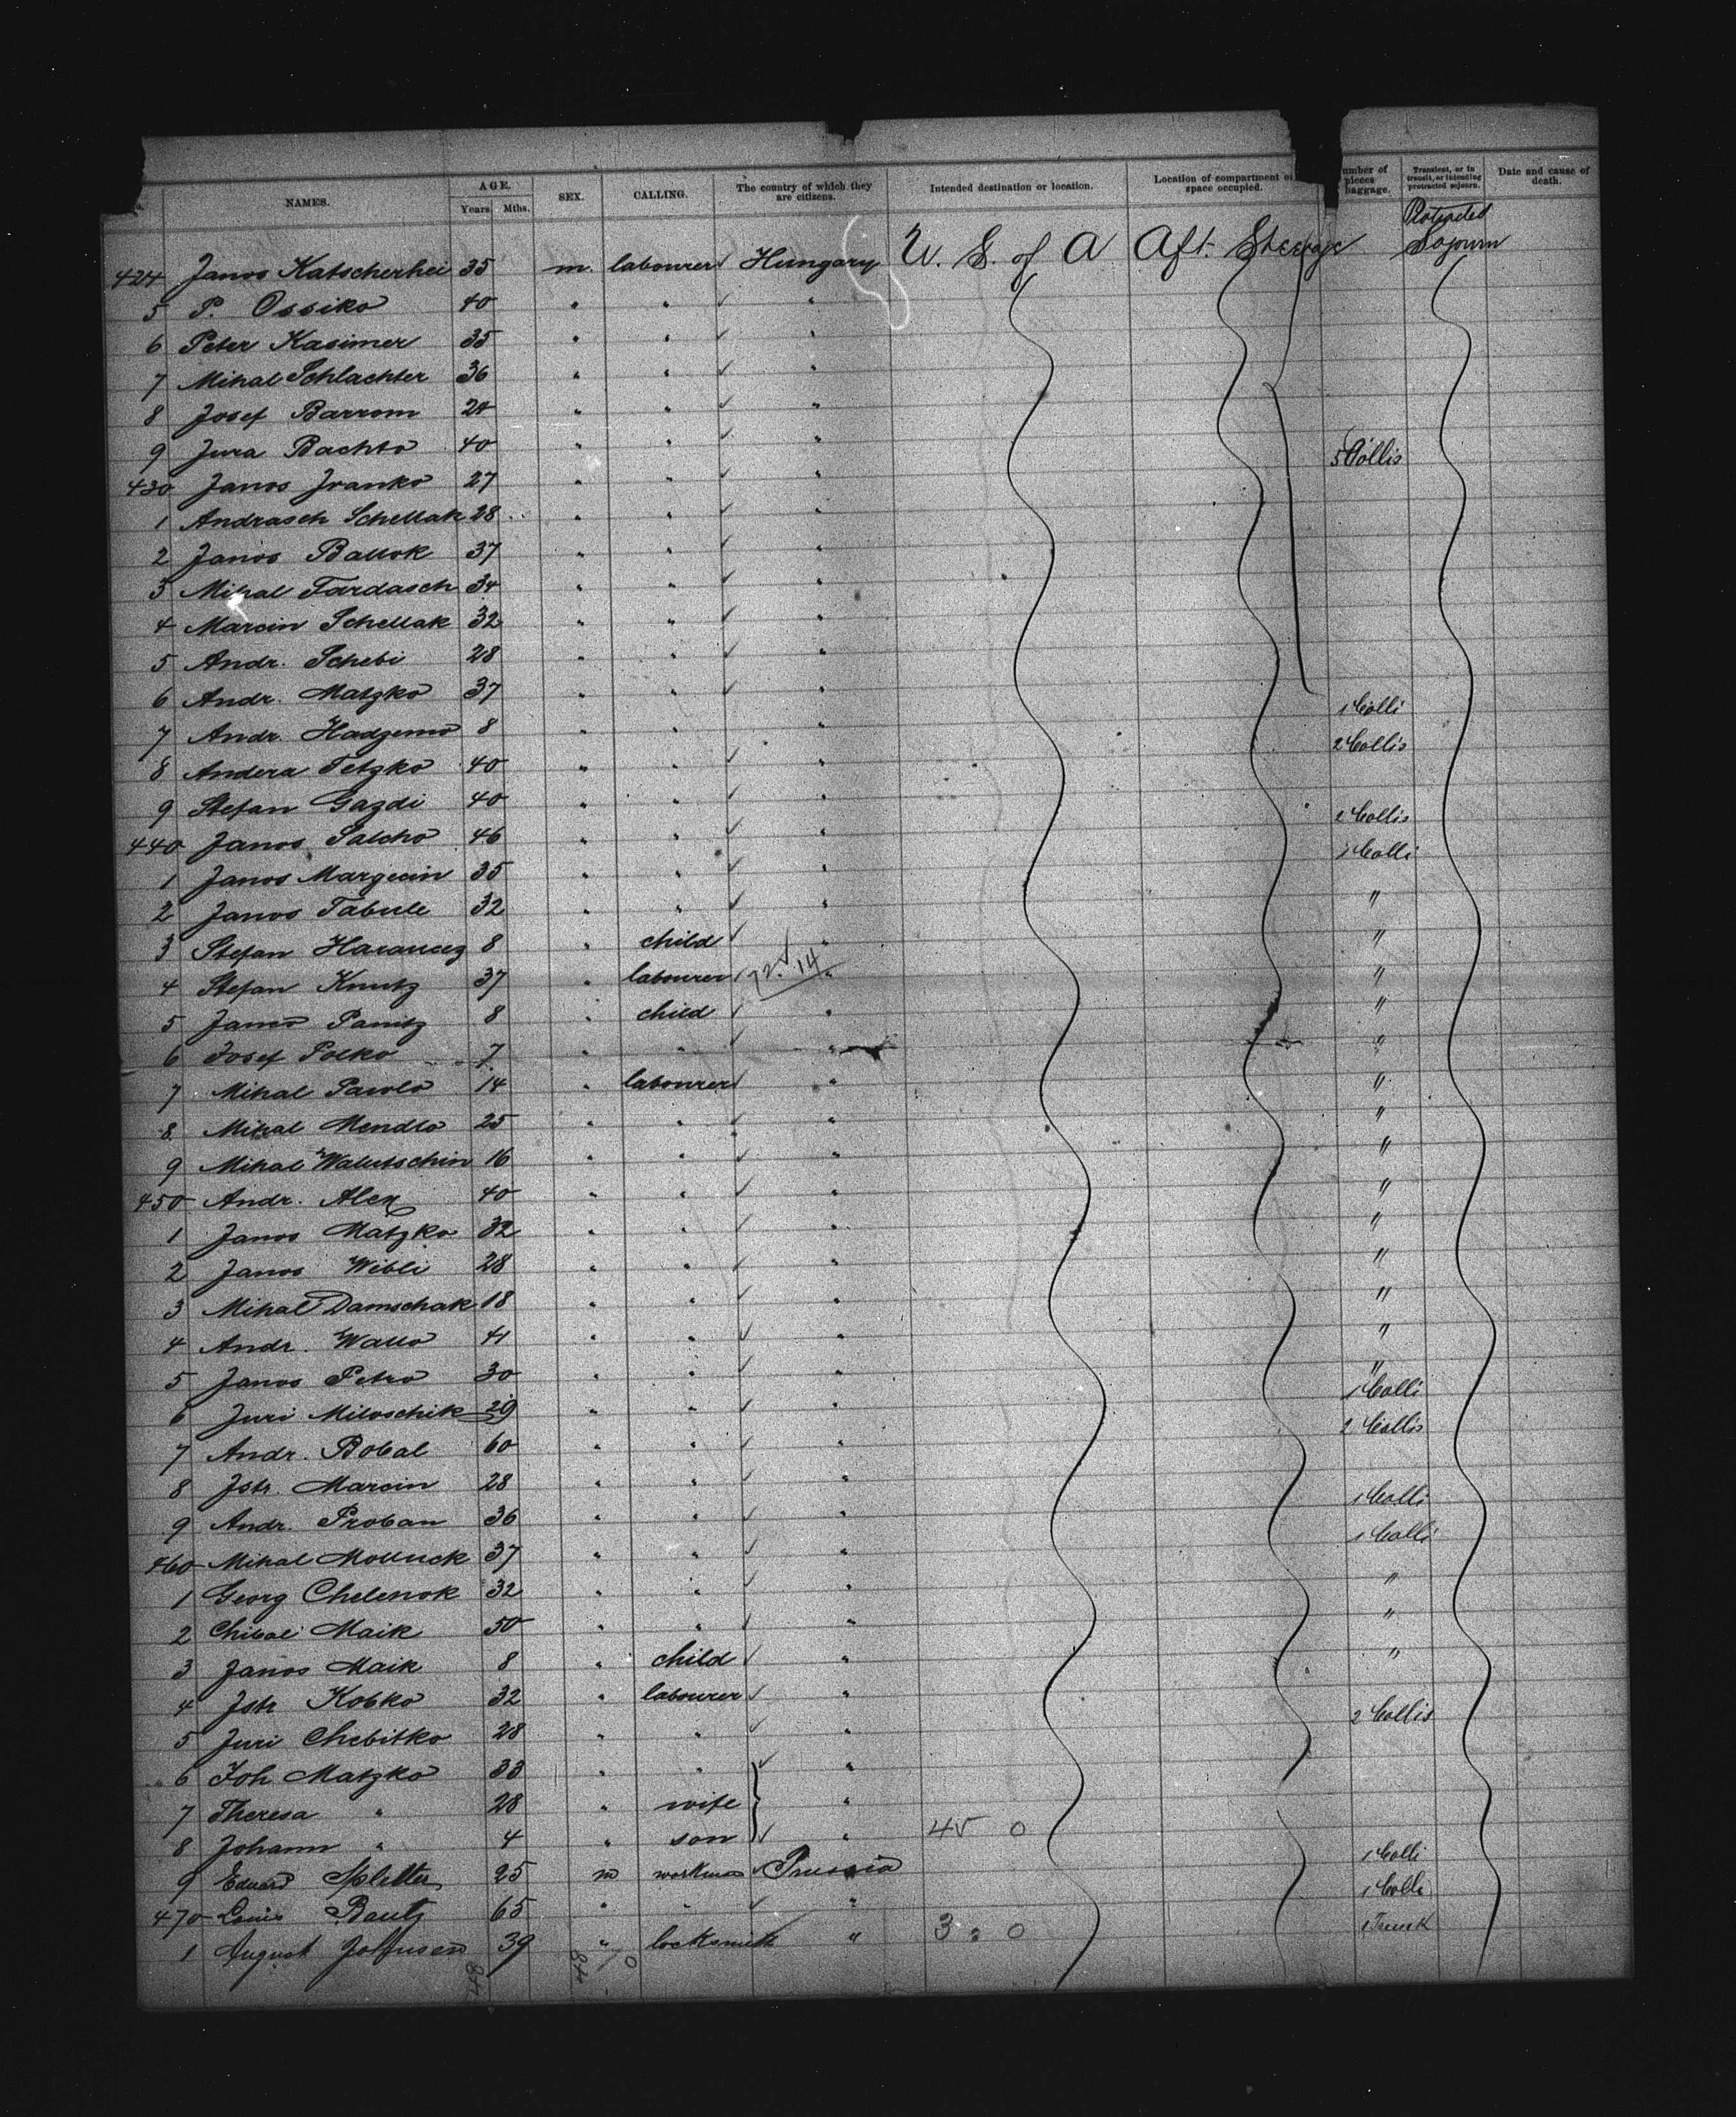 No. NAMES. AGE. Years Mths. SEX. CALLING. The country of which they are citizens. Intended destination or location. Location of compartment or space occupied. Number of pieces baggage. Transient, or in transit, or intending protracted sojourn. Date and cause of death.
424 Janos Katscherhei 35 m. labourer Hungary U. S. of A Aft. Steerage Protracted Sojourn
5 P. Ossiko 40 " " "
6 Peter Kasimer 35 " " "
7 Mihal Schlachter 36 " " "
8 Josef Barrom 24 " " "
9 Jura Bachto 40 " " " 5 Collis
430 Janos Iranko 27 " " "
1 Andrasch Schellak 28 " " "
2 Janos Ballok 37 " " "
3 Mihal Tardasch 34 " " "
4 Marcin Schellak 32 " " "
5 Andr. Schebi 28 " " "
6 Andr. Matzko 37 " " " 1 Colli
7 Andr. Hadzemo 8 " " " 2 Collis
8 Andera Tetzko 40 " " "
9 Stefan Gazdi 40 " " " 2 Collis
440 Janos Salcho 46 " " " 1 Colli
1 Janos Margecin 35 " " "
2 Janos Tabule 32 " " " "
3 Stefan Haraucez 8 " child " "
4 Stefan Knutz 37 " labourer " "
5 Janos Panitz 8 " child " "
6 Josef Polko 7 " " " "
7 Mihal Pawlo 14 " labourer " "
8 Mihal Mendlo 25 " " " "
9 Mihal Walutschin 16 " " " "
450 Andr. Alex 40 " " " "
1 Janos Matzko 32 " " " "
2 Janos Wibli 28 " " " "
3 Mihal Damschak 18 " " " "
4 Andr. Wallo 41 " " " "
5 Janos Petro 30 " " " " 1 Colli
6 Juri Miloschik 29 " " " 2 Collis
7 Andr. Bobal 60 " " "
8 Jstr. Marcin 28 " " " 1 Colli
9 Andr. Proban 36 " " " 1 Colli
460 Mihal Molluck 37 " " "
1 Georg Chelenok 32 " " " "
2 Chibal Maik 50 " " " "
3 Janos Maik 8 " child " "
4 Jstr Kobko 32 " labourer " 2 Collis
5 Juri Chebitko 28 " " "
6 Joh Matzko 33 " " "
7 Theresa " 28 " wife "
8 Johann " 4 " son " 45 0 1 Colli
9 Eduard Spletter 25 m workman Prussia 1 Colli
470 Louis Bautz 65 " " " 1 Trunk
1 August 39 " locksmith " 3 : 0
48 48 0